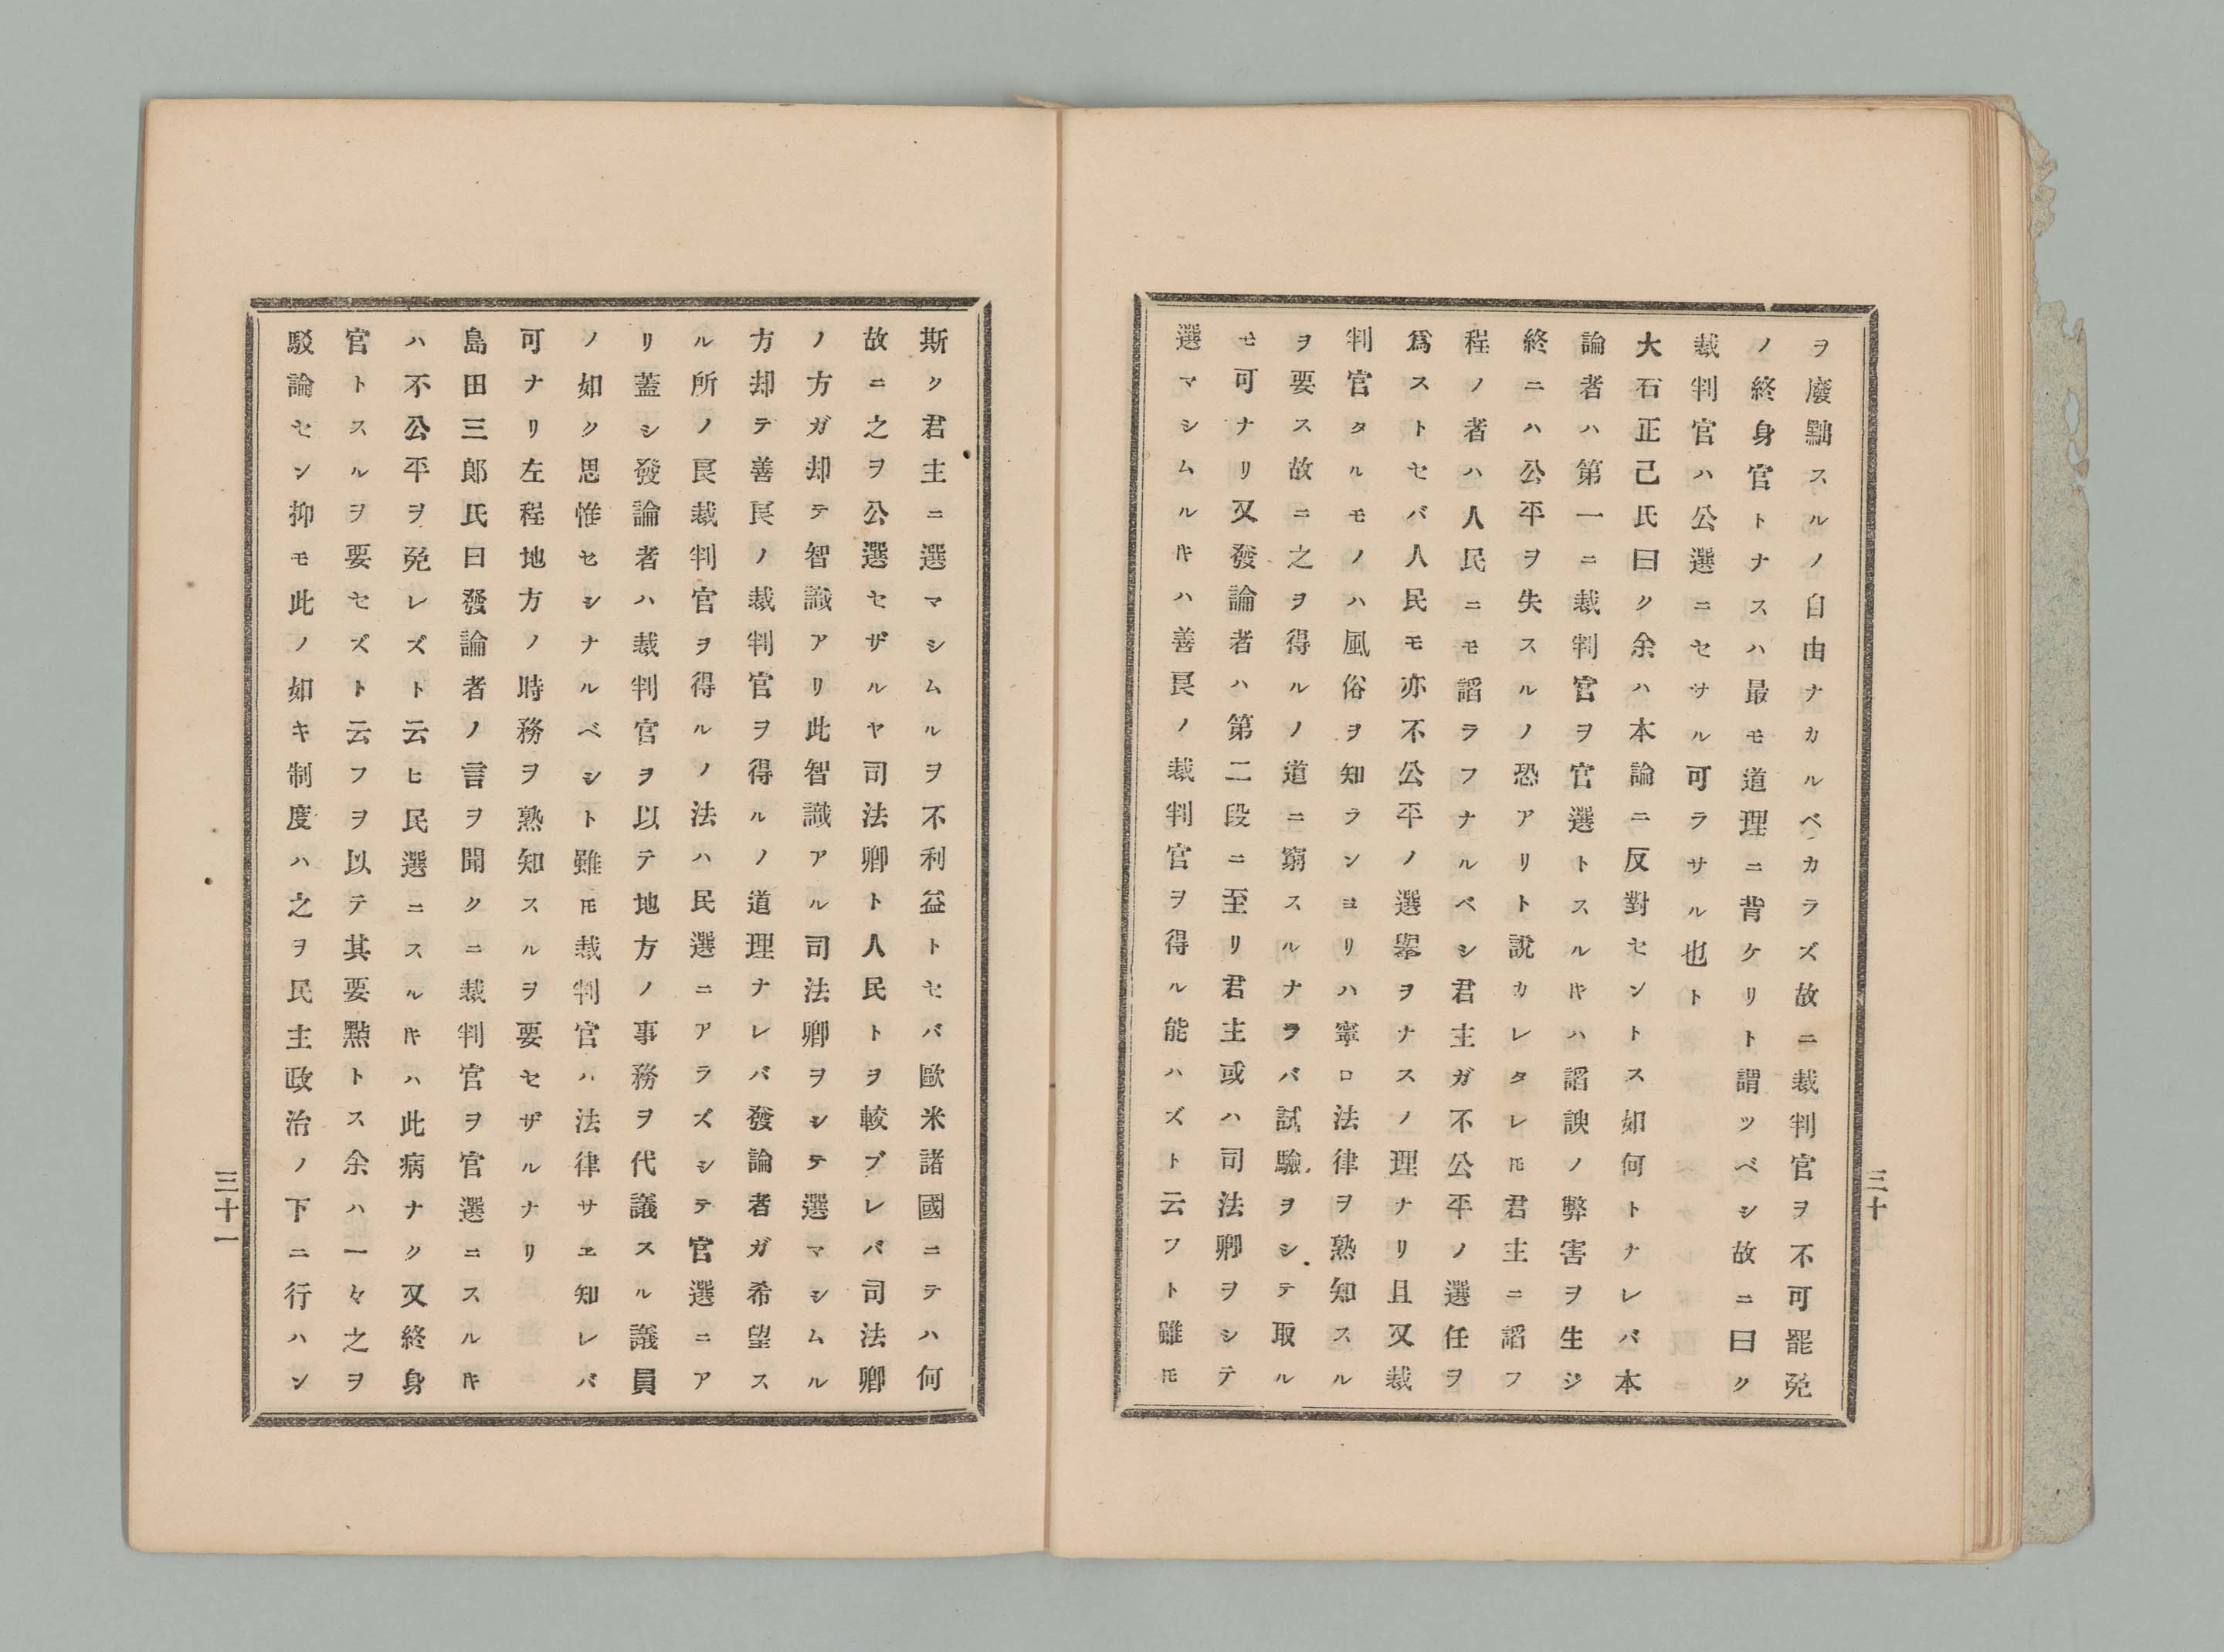 ヲ廢黜スルノ自由ナカルベカラズ故ニ裁判官ヲ不可罷免
ノ終身官トナスハ最モ道理ニ背ケリト謂ツベシ故ニ曰ク
裁判官ハ公選ニセサル可ラサル也ト
大石正己氏曰ク余ハ本論ニ反對セントス如何トナレバ本
論者ハ第一ニ裁判官ヲ官選トスルキハ諂諛ノ弊害ヲ生ジ
終ニハ公平ヲ失スルノ恐アリト說カレタレ𪜈君主ニ諂フ
程ノ者ハ人民ニモ諂ラフナルベシ君主ガ不公平ノ選任ヲ
爲ストセバ人民モ亦不公平ノ選擧ヲナスノ理ナリ且又裁
判官タルモノハ風俗ヲ知ランヨリハ寧ロ法律ヲ熟知スル
ヲ要ス故ニ之ヲ得ルノ道ニ窮スルナラバ試驗ヲシテ取ル
モ可ナリ又發論者ハ第二段ニ至リ君主或ハ司法卿ヲシテ
選マシムルキハ善良ノ裁判官ヲ得ル能ハズト云フト雖𪜈
三十
斯ク君主ニ選マシムルヲ不利益トセバ歐米諸國ニテハ何
故ニ之ヲ公選セザルヤ司法卿ト人民トヲ較ブレバ司法卿
ノ方ガ却テ智識アリ此智識アル司法卿ヲシテ選マシムル
方却テ善良ノ裁判官ヲ得ルノ道理ナレバ發論者ガ希望ス
ル所ノ良裁判官ヲ得ルノ法ハ民選ニアラズシテ官選ニア
リ蓋シ發論者ハ裁判官ヲ以テ地方ノ事務ヲ代議スル議員
ノ如ク思惟セシナルベシト雖𪜈裁判官ハ法律サヱ知レバ
可ナリ左程地方ノ時務ヲ熟知スルヲ要セザルナリ
島田三郎氏曰發論者ノ言ヲ聞クニ裁判官ヲ官選ニスルキ
ハ不公平ヲ免レズト云ヒ民選ニスルキハ此病ナク又終身
官トスルヲ要セズト云フヲ以テ其要點トス余ハ一々之ヲ
駁論セン抑モ此ノ如キ制度ハ之ヲ民主政治ノ下ニ行ハン
三十一